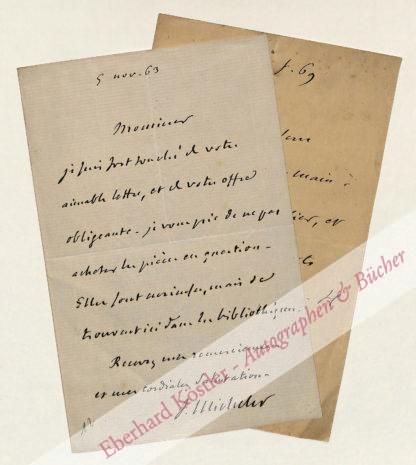 5 nov. 63
Monsieur
je suis fort touché de votre
aimable lettre, et de votre offre
obligeante. je vous prie de ne pas
acheter les pièces en question.
Elles sont curieuses, mais se
trouvent ici dans les bibliothèques.
Recevez mes remerciemens
et mes cordiales salutations.
J. Michelet
69
main à
et
Eberhard Köstler - Autographen & Bücher